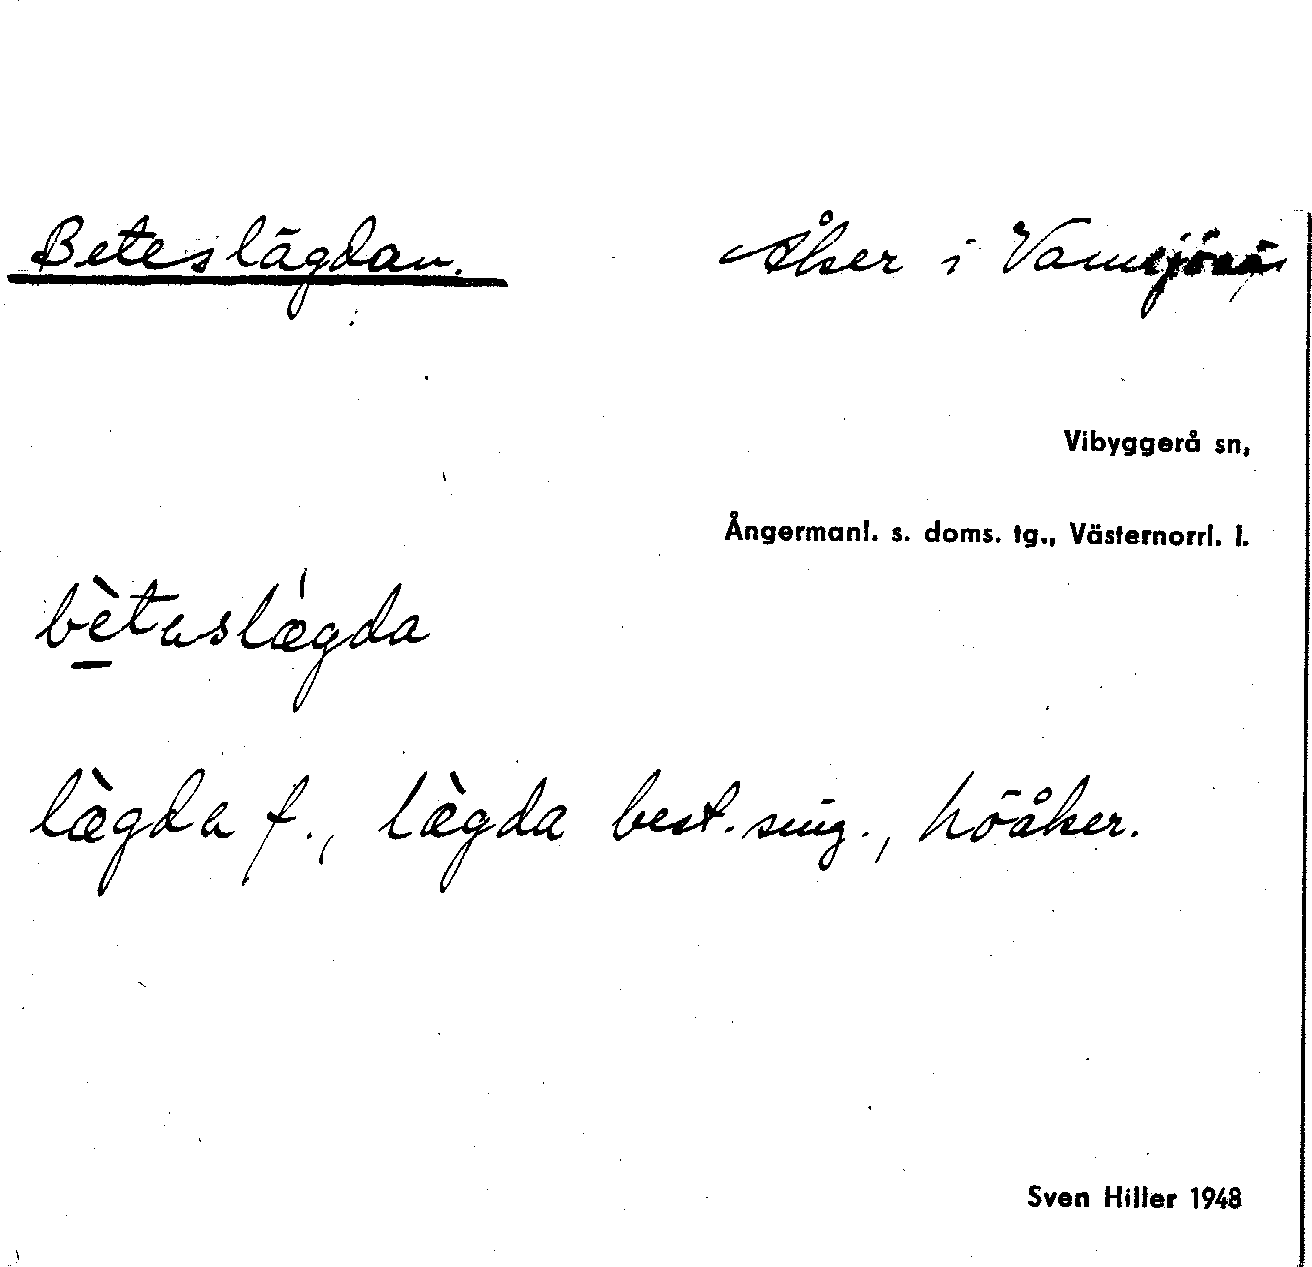 Beteslägdan. Åker i
Vibyggerå sn,
Ångermanl. s. doms. tg., Västernorrl. l.
bètaslǽgda
læ̀gda f., læ̀gda best. sing., höåker.
Sven Hiller 1948